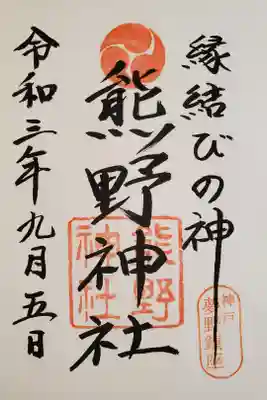 縁結びの神
熊野神社
熊野
神社
令和三年九月五日
神戸
夢野鎮座